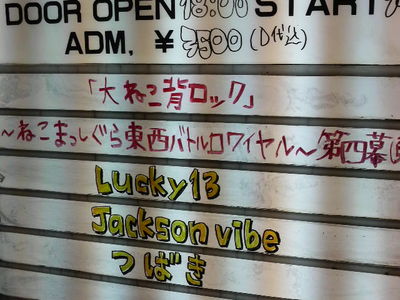 DOOR OPEN 18:00 START
ADM. ¥ 3500 (D代込)
「大ねこ背ロック」
～ねこまっしぐら東西バトルロワイヤル～第四幕
Lucky13
Jackson vibe
つばき